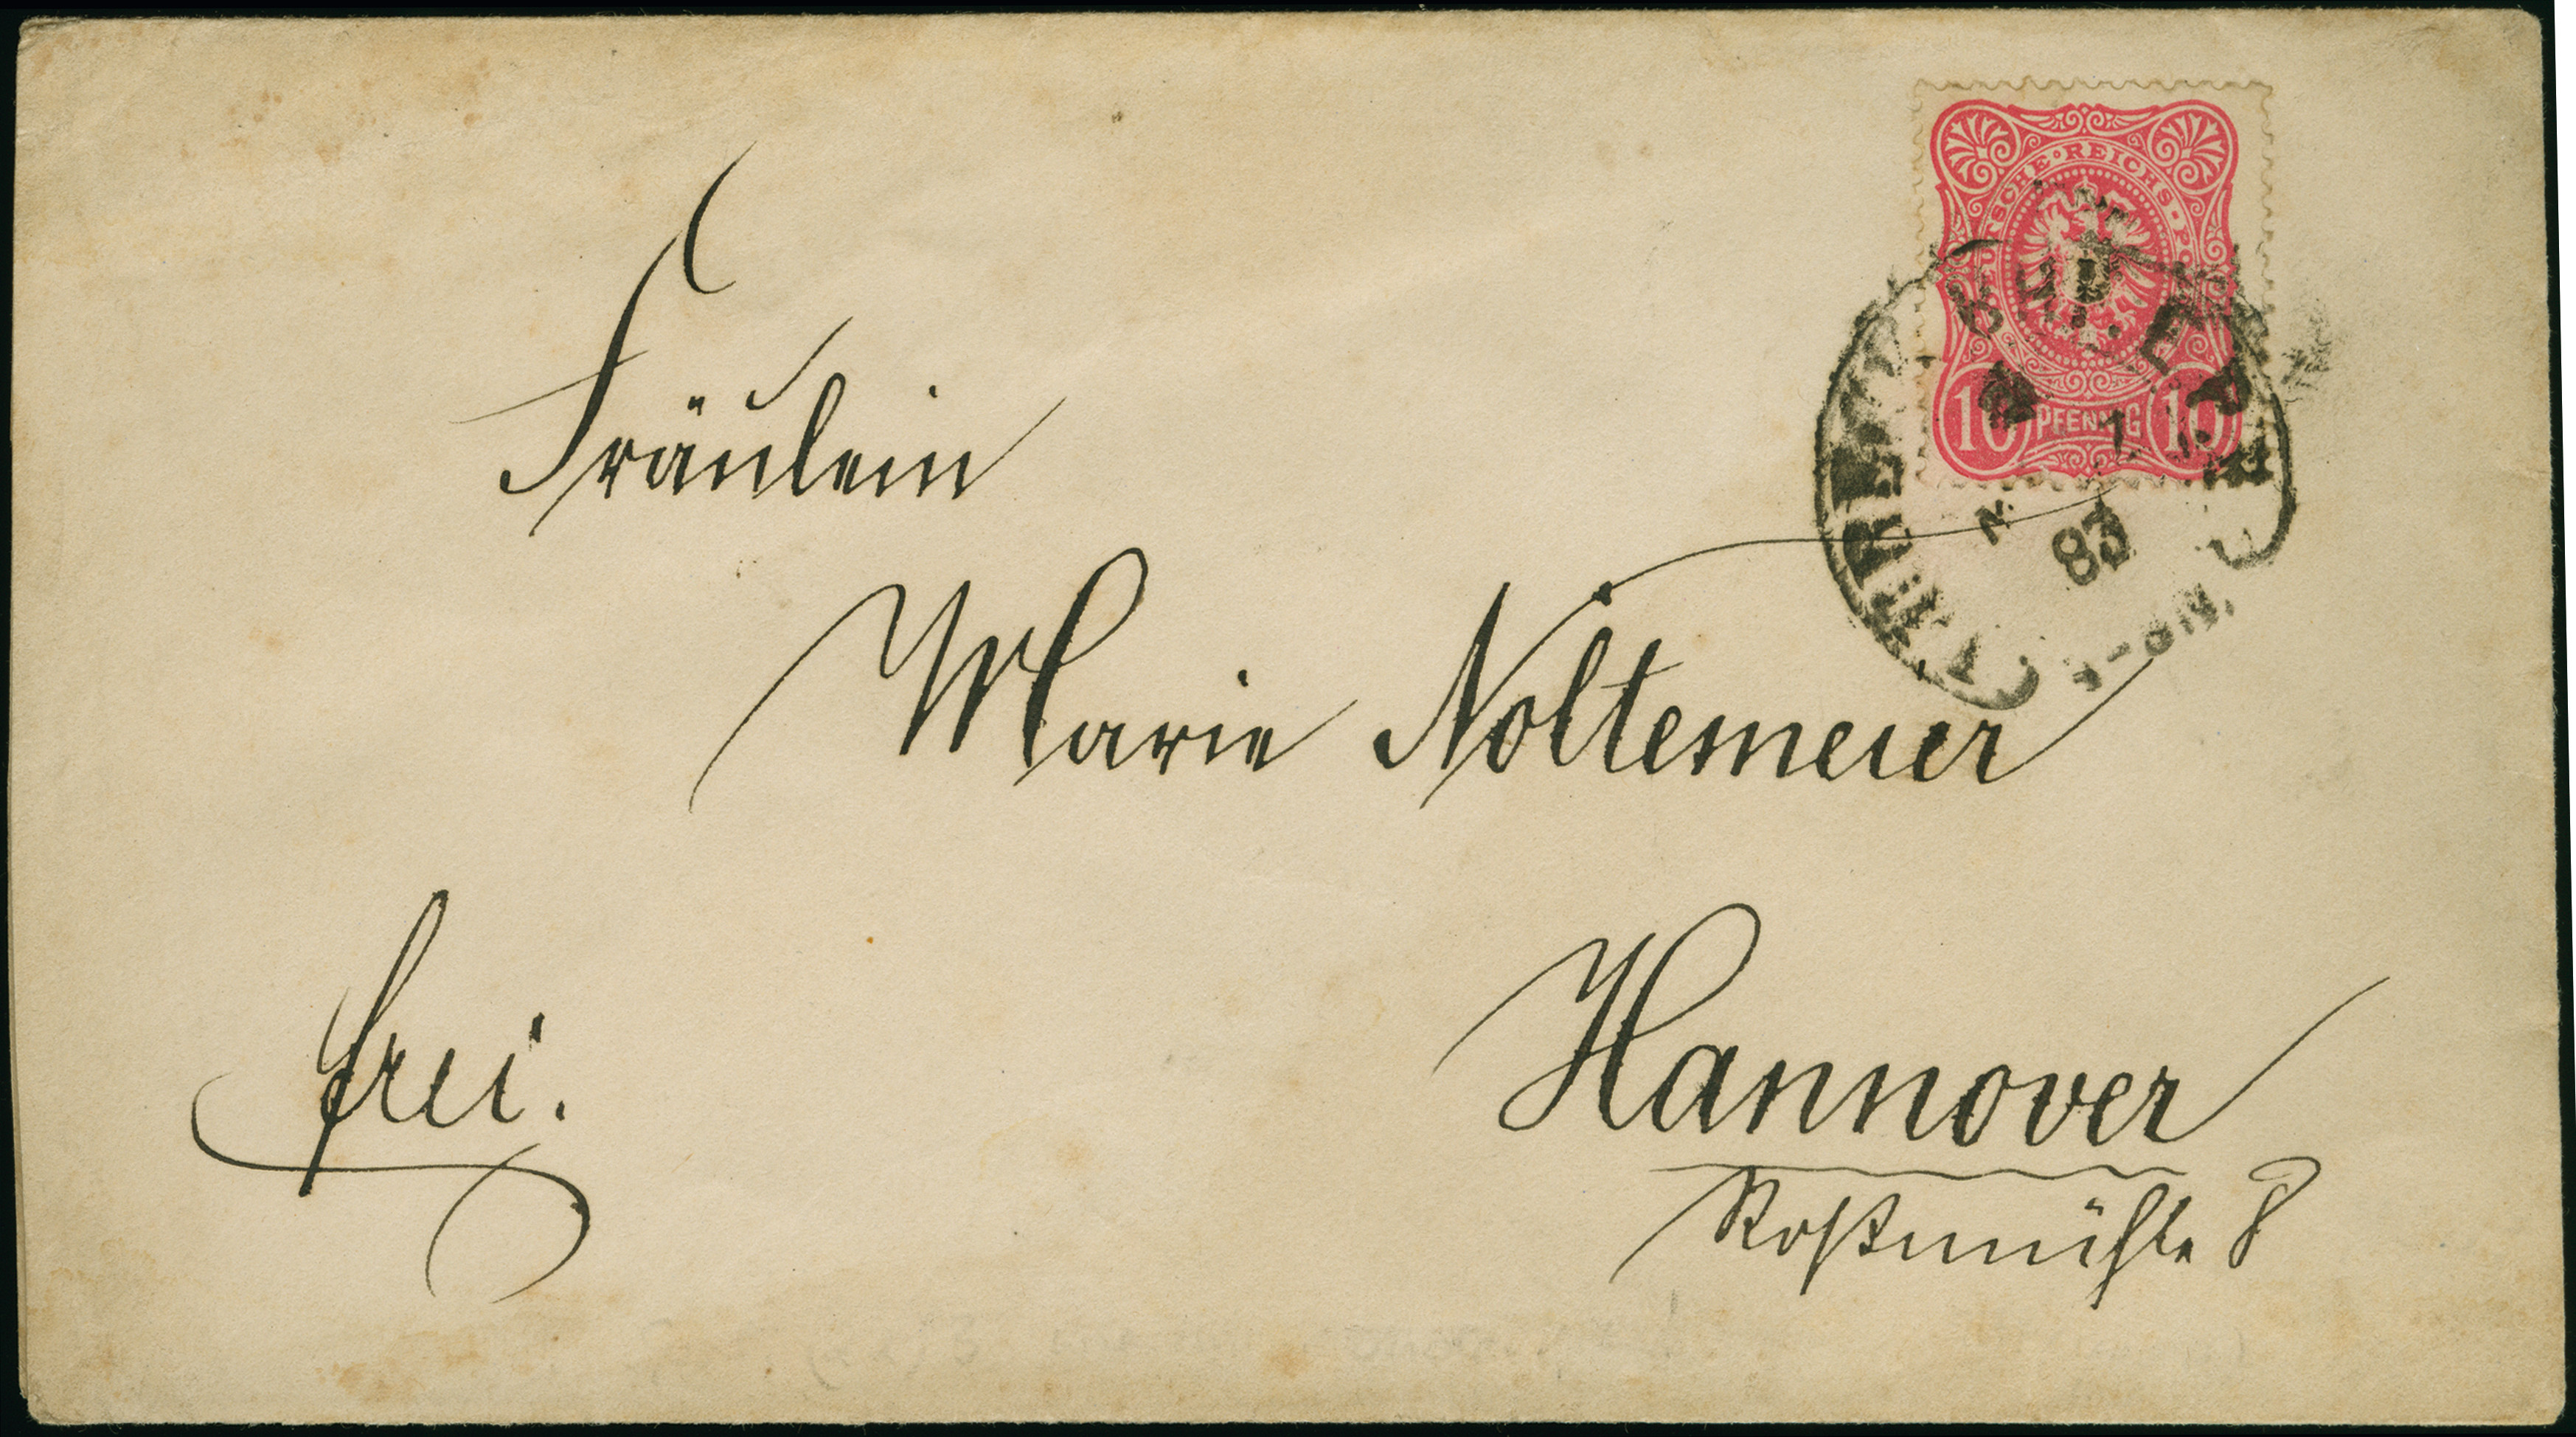 DEUTSCHE · REICHS - POST
10 PFENNIG 10
83
Fräulein
Marie Noltemeier
frei.
Hannover
Roßmühle 8